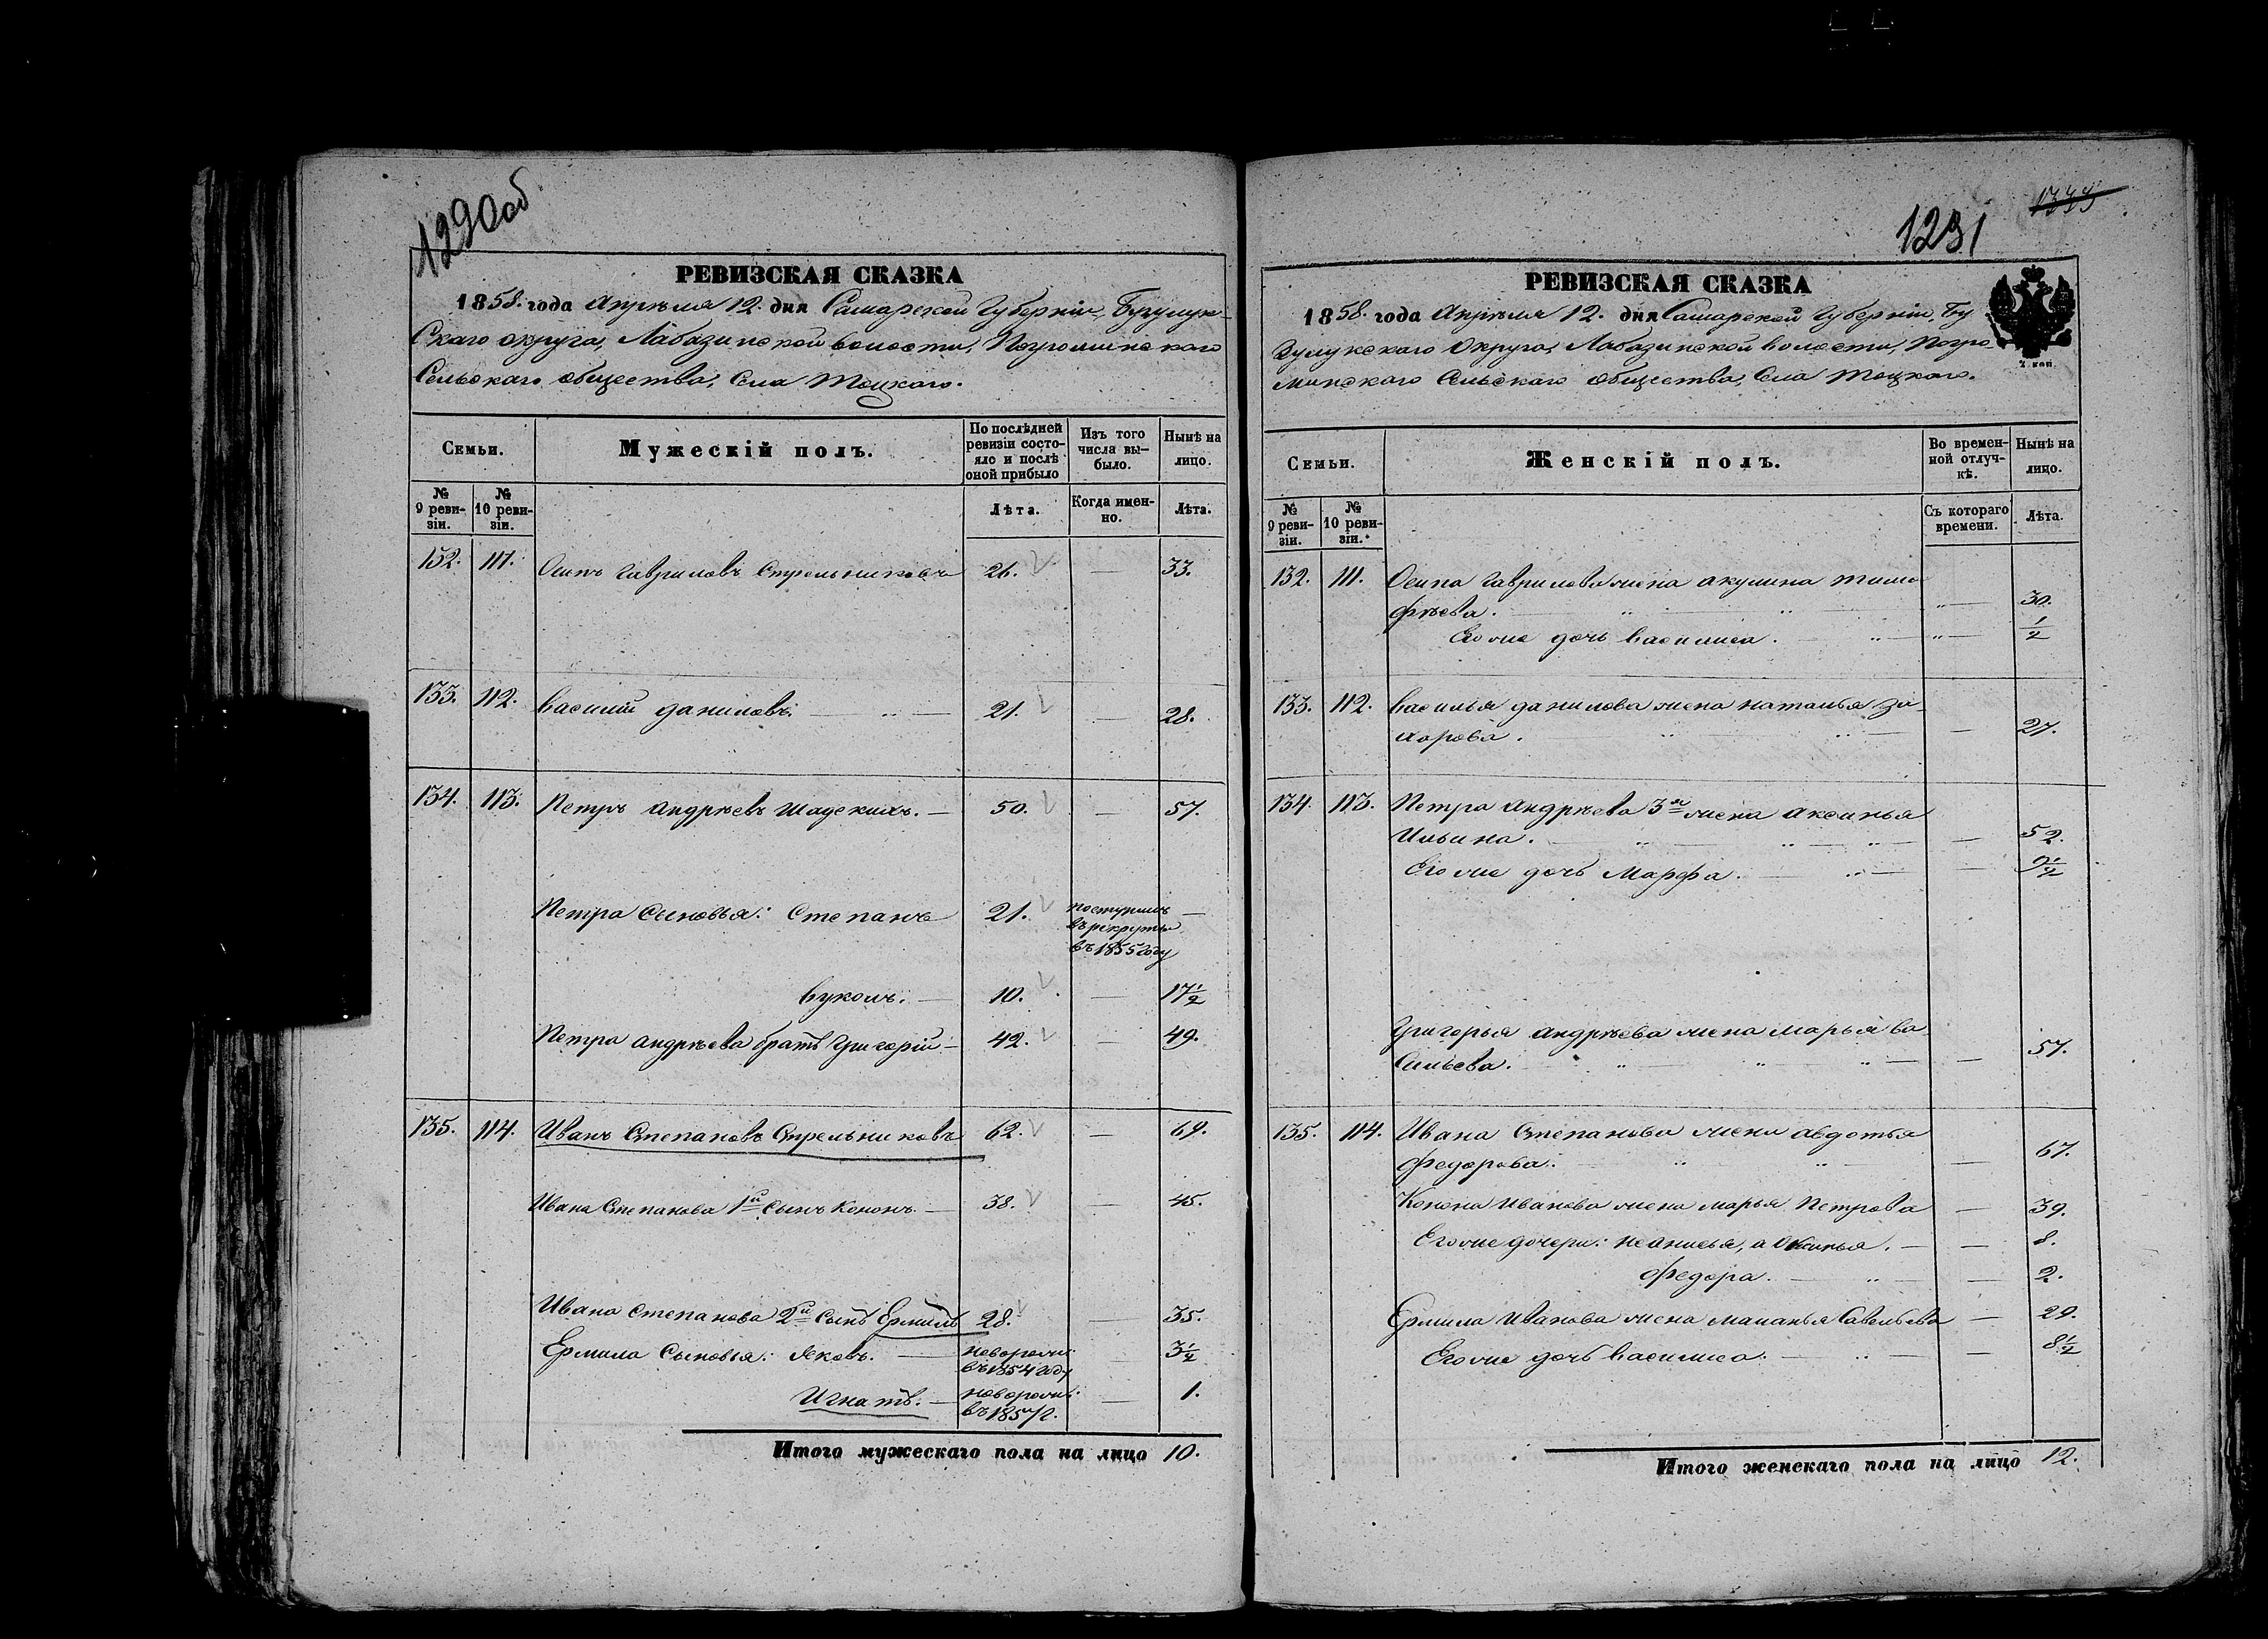 1290об
РЕВИЗСКАЯ СКАЗКА
1858. года Апрѣля 12. дня Самарской Губерніи, Бузулук-
скаго округа, Лабазинской волости, Погроминскаго
Сельскаго общества, Села Тоцкаго.
Семьи.
Мужескій полъ.
По послѣдней ревизіи состояло и послѣ оной прибыло
Изъ того числа вы-было.
Нынѣ на лицо.
№ 9 реви-зіи.
№ 10 реви-зіи.
Лѣта.
Когда имен-но.
Лѣта.
132. 111. Осипъ Гавриловъ Стрельниковъ 26. — 33.
133. 112. Василий Даниловъ. — 21. — 28.
134. 113. Петръ Андрѣевъ Шадскихъ. — 50. — 57.
Петра Сыновья: Степанъ 21. поступилъ —
въ рекруты
въ 1855 году
Вуколъ. — 10. — 17½
Петра Андрѣева братъ Григорій — 42. — 49.
135. 114. Иванъ Степановъ Стрельниковъ 62. — 69.
Ивана Степанова 1й сынъ Кононъ. — 38. — 45.
Ивана Степанова 2й сынъ Ермилъ 28. — 35.
Ермила Сыновья: Яковъ. — новорожд: 3½
въ 1854 году
Игнатъ. — новорожд: — 1.
въ 1857 г.
Итого мужескаго пола на лицо 10.
1291
РЕВИЗСКАЯ СКАЗКА
1858. года Апрѣля 12. дня Самарской Губерніи, Бу
зулукскаго Округа, Лабазинской волости, Погро
минскаго Сельскаго общества, Села Тоцкаго.
2 коп.
Семьи.
Женскій полъ.
Во времен-ной отлуч-кѣ.
Нынѣ на лицо.
№ 9 реви-зіи.
№ 10 реви-зіи.
Съ котораго времени.
Лѣта.
132. 111. Осипа Гаврилова жена Акулина Тимо
фѣева. — 30.
Его же дочь Василиса. — ½
133. 112. Василья Данилова жена Наталья За-
харова. — 27.
134. 113. Петра Андрѣева 3я жена Аксинья
Ильина. — 52.
Его же дочь Марфа. — 9½
Григорья Андрѣева жена Марья Ва
сильева. — 57.
135. 114. Ивана Степанова жена Авдотья
Федорова. — 67.
Конона Иванова жена Марья Петрова — 39.
Его же дочери: — 8.
Федора. — 2.
Ермила Иванова жена Маланья Савельева — 29.
Его же дочь Василиса. — 8½
Итого женскаго пола на лицо 12.